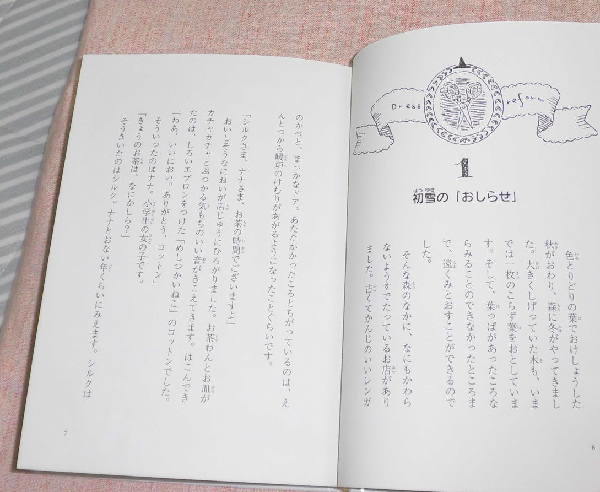 Dress reform
1
初雪の「おしらせ」
色とりどりの葉でおけしょうした
秋がおわり、森に冬がやってきまし
た。大きくしげっていた木も、いま
では一枚のこらず葉をおとしていま
す。そして、葉っぱがあったころな
らみることのできなかったところま
で、遠くみとおすことができるので
した。
そんな森のなかに、なにもかわら
ないようすでたっているお店があり
ました。古くてかんじのいいレンガ
6
のかべと、まっかなドア。あたたかかったころとちがっているのは、え
んとつから暖炉のけむりがあがるように なったことくらいです。
「シルクさま、ナナさま、お茶の時間でございますよ」
おいしそうなにおいが、ふいにひろがりました。お茶わんとお皿が
カチャカチャとぶつかる気もちのいい音がきこえてきます。はこんでき
たのは、しろいエプロンをつけた「めしつかいねこ」のコットンでした。
「わあ、いいにおい。ありがとう、コットン」
そういったのはナナ。小学生の女の子です。
「きょうのお茶は、なにかしら？」
そうきいたのはシルク。ナナとおない年くらいにみえます。シルクは
7